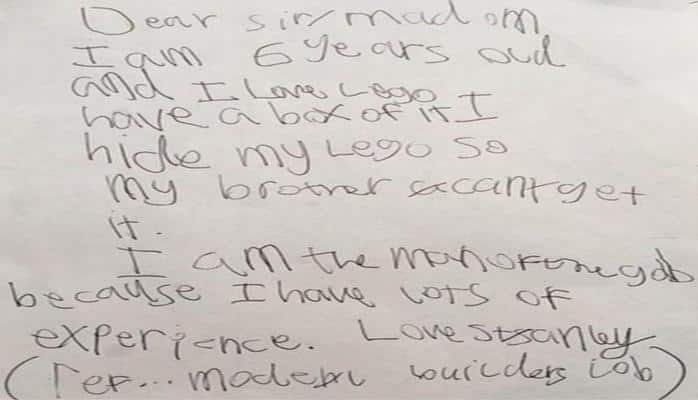 Dear sir/madam
I am 6 years old
and I Love Lego
have a box of it I
hide my Lego so
my brother cant get
it.
I am the man for the gob
because I have lots of
experience. Love Stanley
(ref... model builders job)